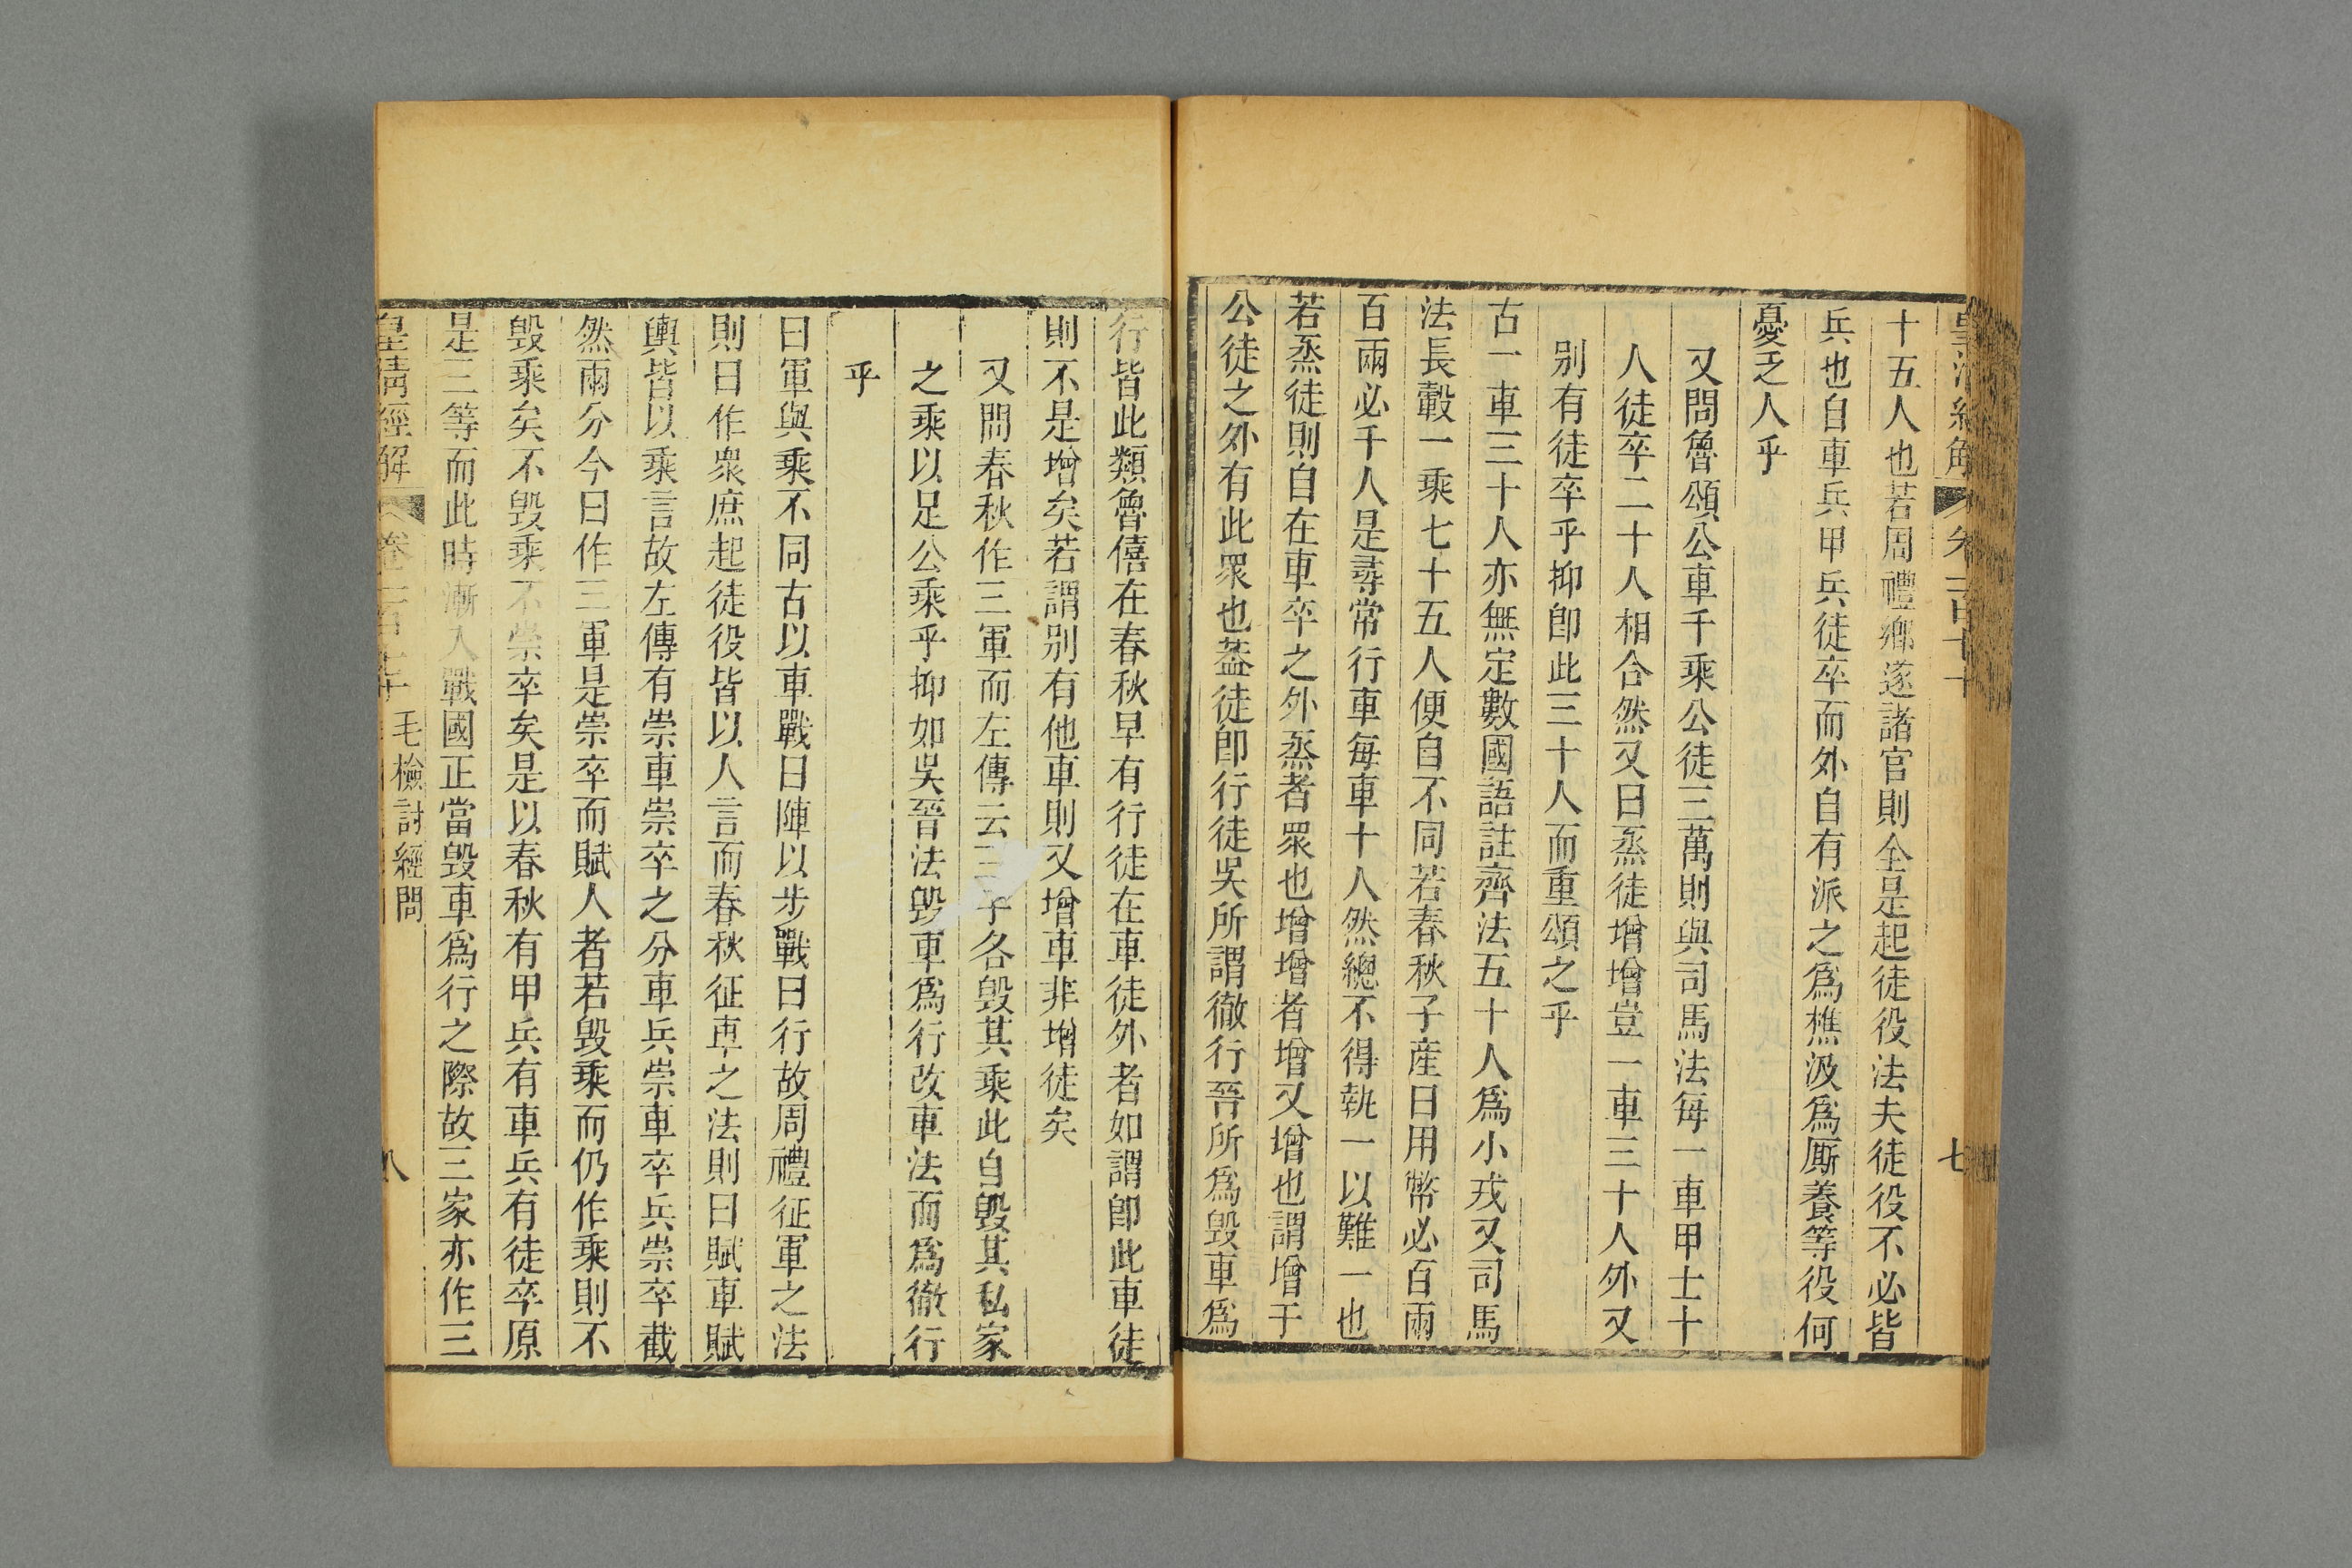 十五人也若周禮鄉遂諸官則全是起徒役法夫徒役不必皆
兵也自車兵甲兵徒卒而外自有派之爲樵汲爲厮養等役何
憂乏人乎
又問魯頌公車千乘公徒三萬則與司馬法每一車甲士十
人徒卒二十人相合然又曰烝徒增增豈一車三十人外又
别有徒卒乎抑卽此三十人而重頌之乎
古一車三十人亦無定數國語註齊法五十人爲小戎又司馬
法長轂一乘七十五人便自不同若春秋子產曰用幣必百兩
百兩必千人是尋常行車每車十人然總不得執一以難一也
若烝徒則自在車卒之外烝者眾也增增者增又增也謂增于
公徒之外有此眾也葢徒卽行徒吳所謂徹行晉所爲毀車爲
行皆此類魯僖在春秋早有行徒在車徒外者如謂卽此車徒
則不是增矣若謂别有他車則又增車非增徒矣
又問春秋作三軍而左傳云三子各毀其乘此自毀其私家
之乘以足公乘乎抑如吳晉法毀車爲行改車法而爲徹行
乎
曰軍與乘不同古以車戰曰陣以步戰曰行故周禮征軍之法
則曰作衆庶起徒役皆以人言而春秋征車之法則曰賦車賦
輿皆以乘言故左傳有崇車崇卒之分車兵崇車卒兵崇卒截
然兩分今曰作三軍是崇卒而賦人者若毀乘而仍作乘則不
毀乘矣不毀乘不崇卒矣是以春秋有甲兵有車兵有徒卒原
是三等而此時漸入戰國正當毀車爲行之際故三家亦作三
皇清經解 卷一百七十 毛檢討經問 八